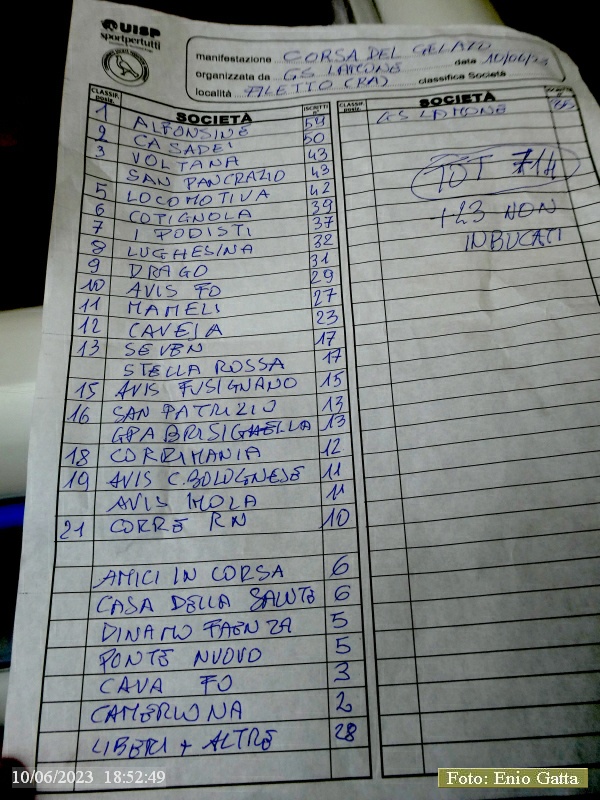 UISP
sportpertutti
manifestazione CORSA DEL GELATO data 10/06/23
organizzata da GS LAMONE classifica Società
località FILETTO (RA)
CLASSIF. SOCIETÀ ISCRITTI n°
1 ALFONSINE 54
2 CASADEI 50
3 VOLTANA 43
SAN PANCRAZIO 43
5 LOCOMOTIVA 42
6 COTIGNOLA 39
7 I PODISTI 37
8 LUGHESINA 32
9 DRAGO 31
10 AVIS FO 29
11 MAMELI 27
12 CAVEJA 23
13 SEVEN 17
STELLA ROSSA 17
15 AVIS FUSIGNANO 15
16 SAN PATRIZIO 13
GPA BRISIGHELLA 13
18 CORRIMANIA 12
19 AVIS C.BOLOGNESE 11
AVIS IMOLA 11
21 CORRE RN 10
AMICI IN CORSA 6
CASA DELLA SALUTE 6
DINAMO FAENZA 5
PONTE NUOVO 5
CAVA FO 3
CAMERLONA 2
LIBERI + ALTRE 28
CLASSIF. SOCIETÀ
GS LAMONE
TOT 714
+23 NON
IMBUCATI
10/06/2023 18:52:49
Foto: Enio Gatta